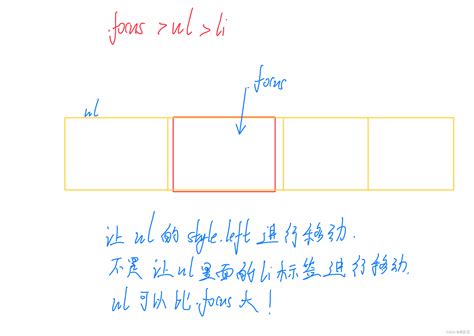 .focus>ul>li
.focus
ul
让ul的style.left进行移动.
不是让ul里面的li标签进行移动.
ul可以比.focus大!